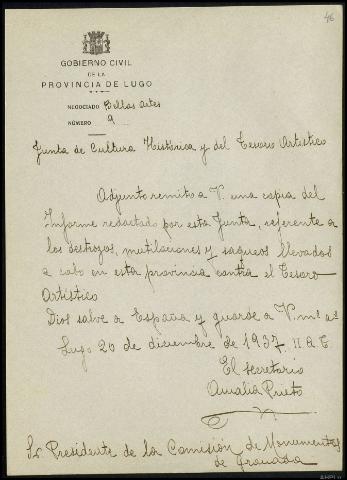 46
GOBIERNO CIVIL
DE LA
PROVINCIA DE LUGO
NEGOCIADO Bellas Artes
NÚMERO 9
Junta de Cultura Histórica y del Tesoro Artístico
Adjunto remito a V. una copia del
Informe redactado por esta Junta, referente a
los destrozos, mutilaciones y saqueos llevados
a cabo en esta provincia contra el Tesoro
Artístico
Dios salve a España y guarde a V. ms. as.
Lugo 20 de diciembre de 1937. II A. T.
El secretario
Amalia Prieto
Sr. Presidente de la Comisión de Monumentos
de Granada